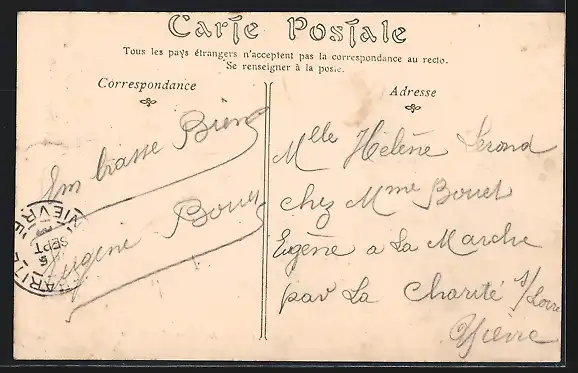 Carte Postale
Tous les pays étrangers n'acceptent pas la correspondance au recto.
Se renseigner à la poste.
Correspondance
Adresse
Em brasse Bien
Eugéni Bouet
NIEVRE
SEPT
Mlle Hélène Lerond
chez Mme Bouet
Eugène a La Marche
par La Charité s/Loire
Nievre